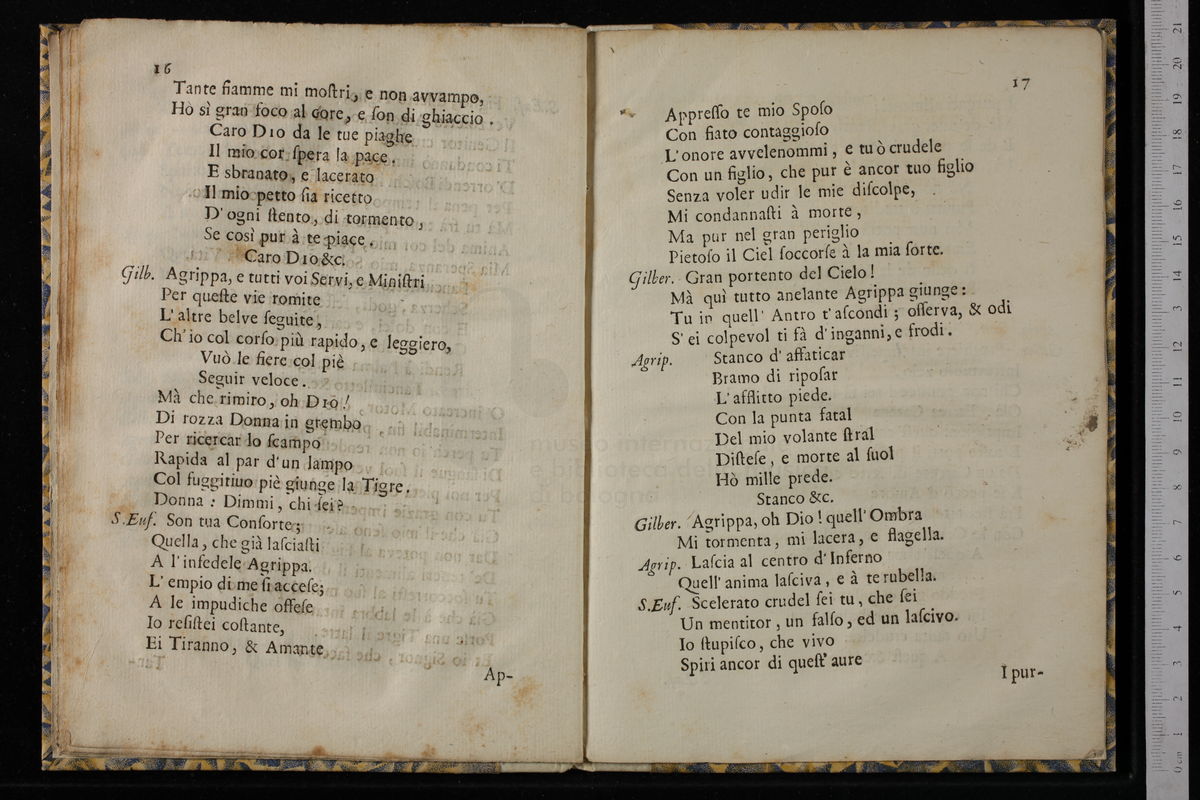 16
Tante fiamme mi moſtri, e non avvampo,
Hò sì gran foco al core, e ſon di ghiaccio.
Caro DIO da le tue piaghe
Il mio cor ſpera la pace.
E sbranato, e lacerato
Il mio petto ſia ricetto
D'ogni ſtento, di tormento,
Se così pur à te piace.
Caro DIO &c.
Gilb. Agrippa, e tutti voi Servi, e Miniſtri
Per queſte vie romite
L'altre belve ſeguite,
Ch'io col corſo più rapido, e leggiero,
Vuò le fiere col piè
Seguir veloce.
Mà che rimiro, oh DIO!
Di rozza Donna in grembo
Per ricercar lo ſcampo
Rapida al par d'un lampo
Col fuggitiuo piè giunge la Tigre.
Donna: Dimmi, chi ſei?
S.Euf. Son tua Conſorte;
Quella, che già laſciaſti
A l'infedele Agrippa.
L'empio di me ſi acceſe;
A le impudiche offeſe
Io reſiſtei coſtante,
Ei Tiranno, & Amante
Ap-
17
Appreſſo te mio Spoſo
Con fiato contaggioſo
L'onore avvelenommi, e tu ò crudele
Con un figlio, che pur è ancor tuo figlio
Senza voler udir le mie diſcolpe,
Mi condannaſti à morte,
Ma pur nel gran periglio
Pietoſo il Ciel ſoccorſe à la mia ſorte.
Gilber. Gran portento del Cielo!
Mà quì tutto anelante Agrippa giunge:
Tu in quell' Antro t'aſcondi; oſſerva, & odi
S'ei colpevol ti fà d'inganni, e frodi.
Agrip. Stanco d'affaticar
Bramo di ripoſar
L'afflitto piede.
Con la punta fatal
Del mio volante ſtral
Diſteſe, e morte al ſuol
Hò mille prede.
Stanco &c.
Gilber. Agrippa, oh Dio! quell'Ombra
Mi tormenta, mi lacera, e flagella.
Agrip. Laſcia al centro d'Inferno
Quell'anima laſciva, e à te rubella.
S.Euf. Scelerato crudel ſei tu, che ſei
Un mentitor, un falſo, ed un laſcivo.
Io ſtupiſco, che vivo
Spiri ancor di queſt'aure
I pur-